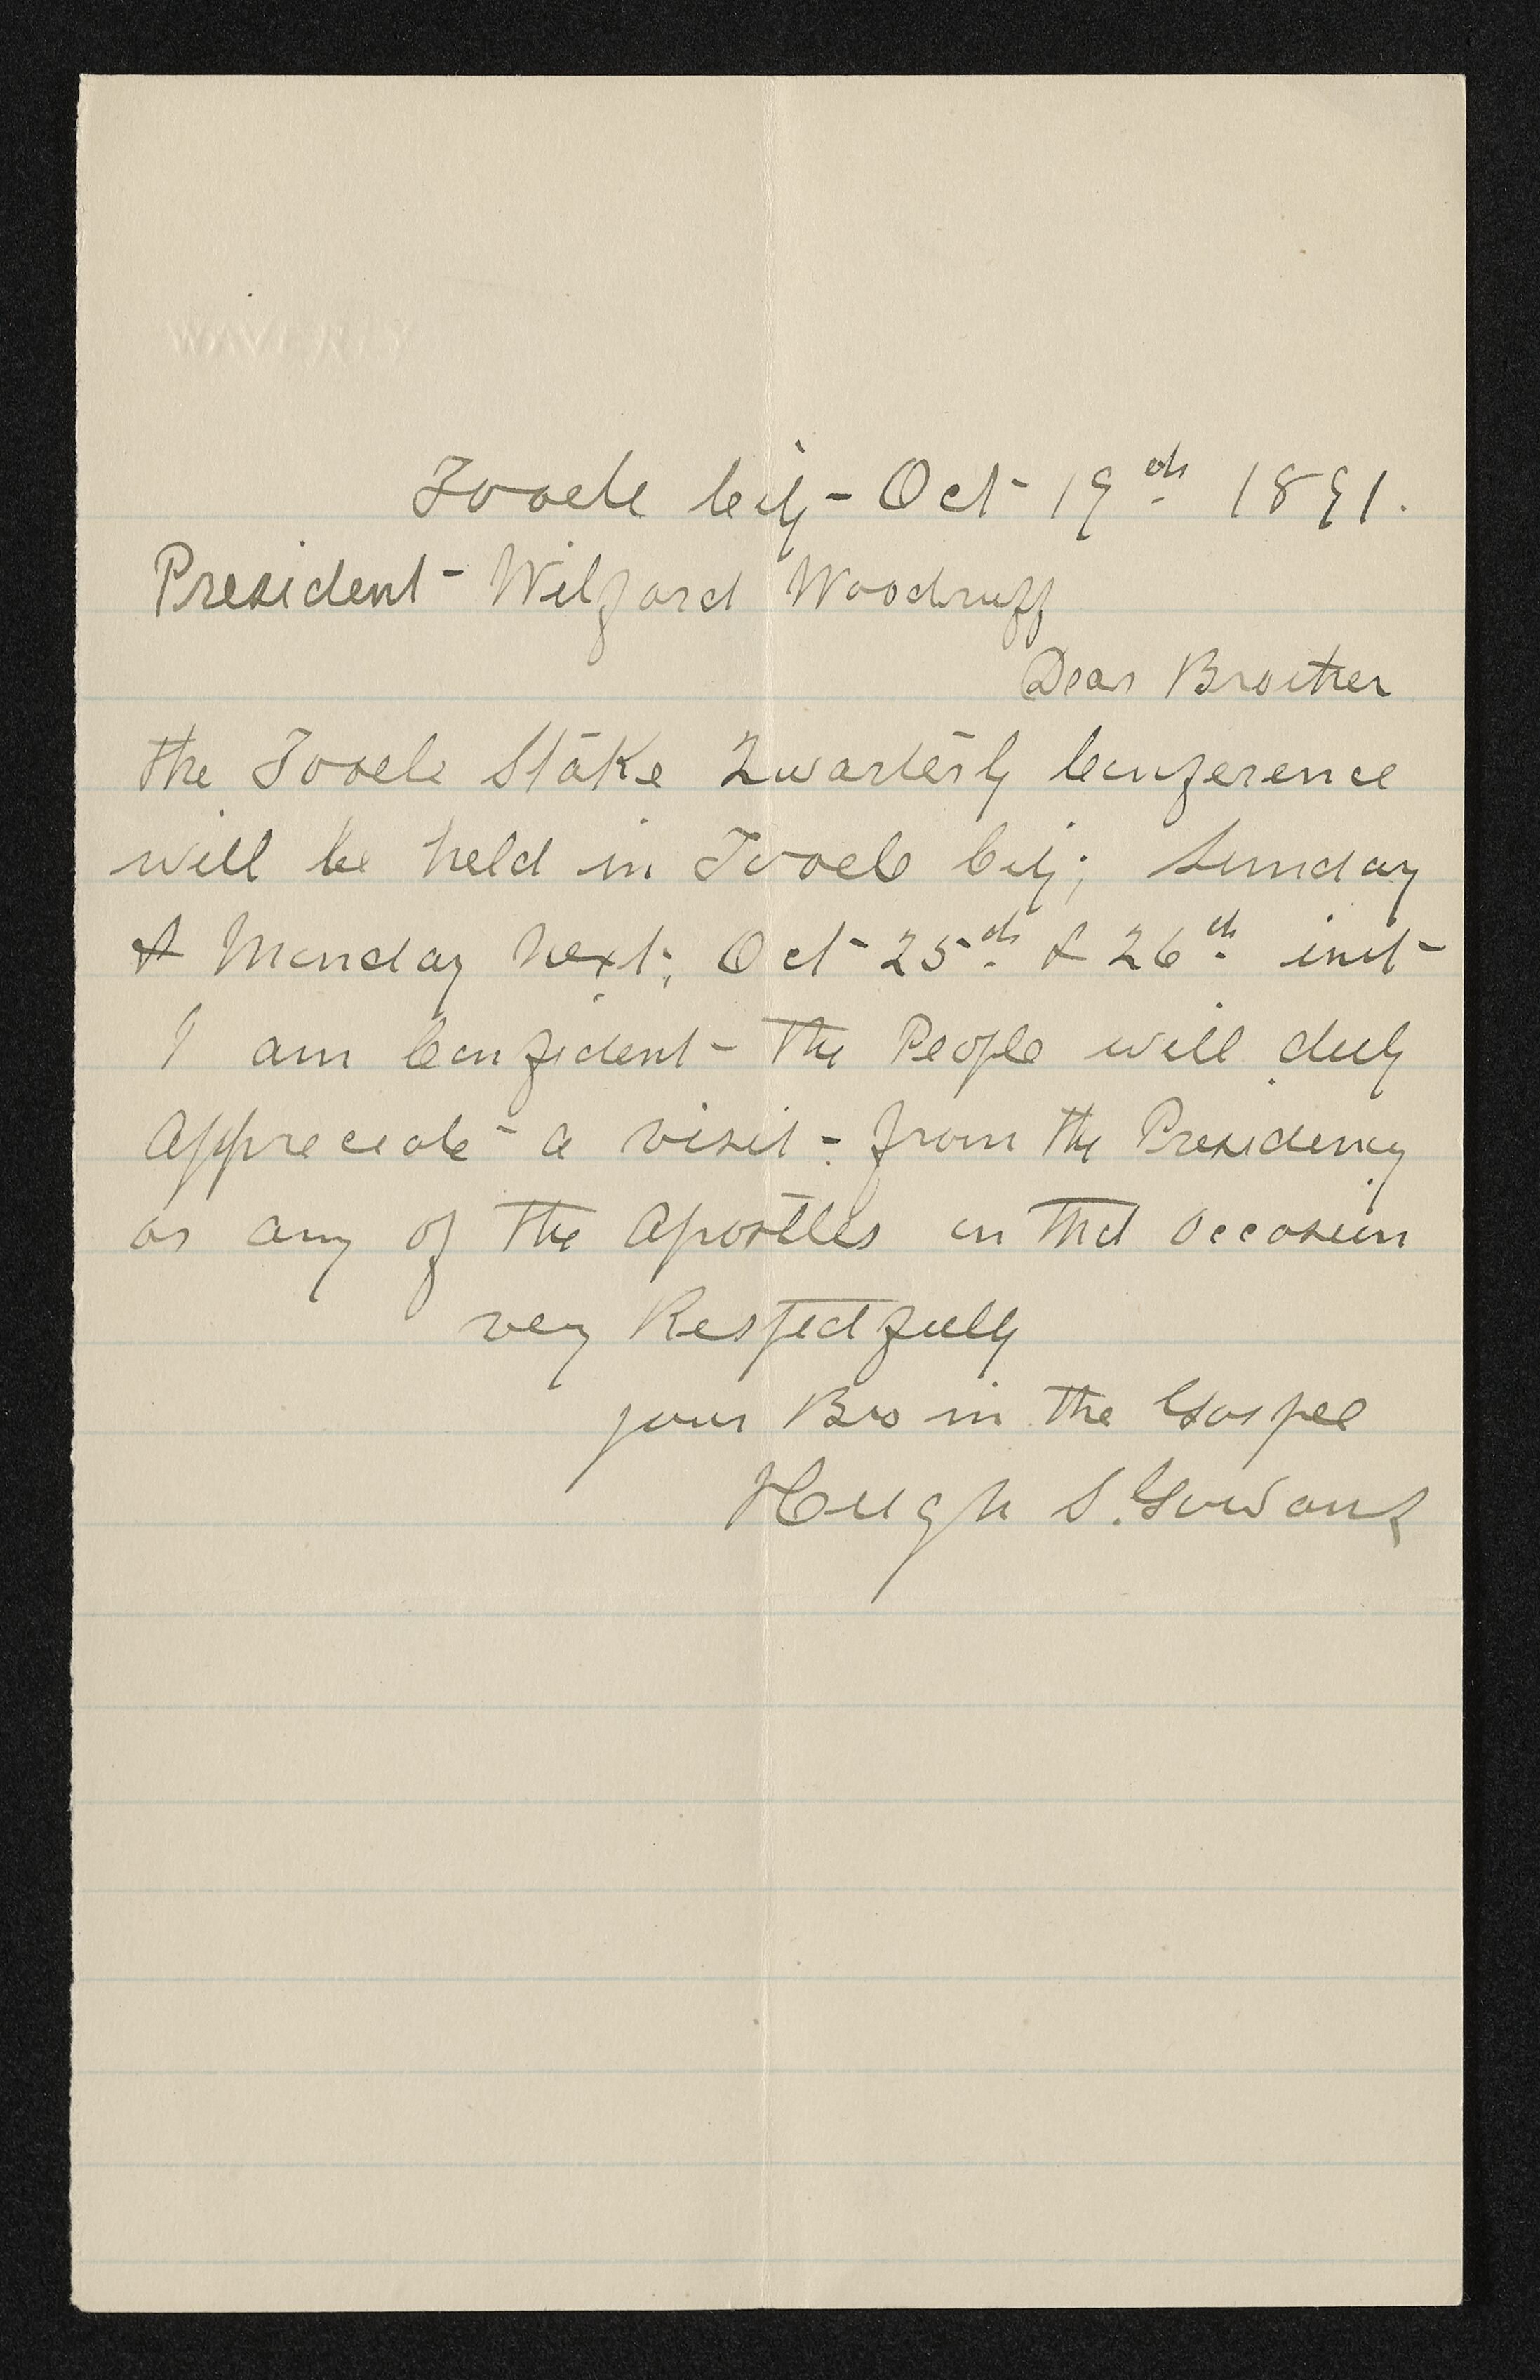 Tooele City - Oct 19th 1891.
President Wilford Woodruff
Dear Brother
the Tooele Stake Quarterly Conference
will be held in Tooele City; Sunday
& Monday next; Oct 25th & 26th inst
I am Confident the People will duly
Appreciate a visit from the Presidency
or any of the Apostles on that Occasion
very Respectfully
your Bro in the Gospel
Hugh S. Gowans